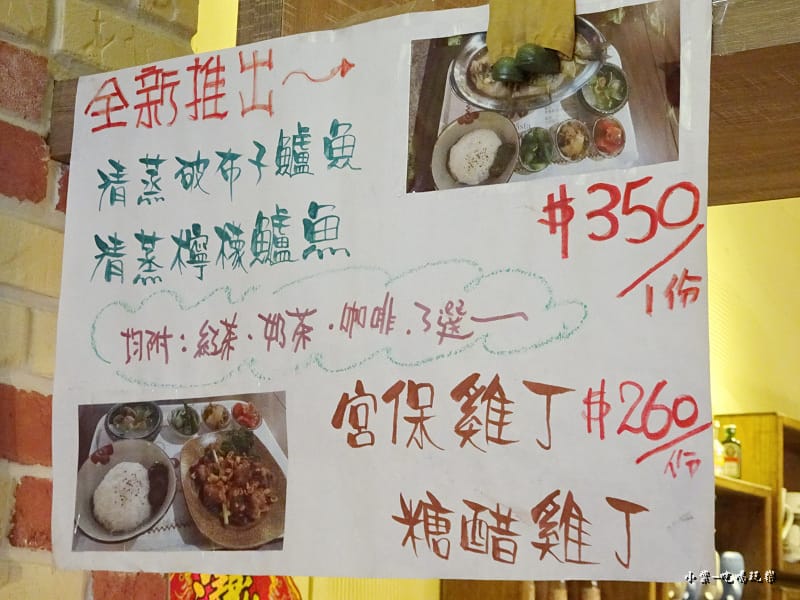 全新推出
清蒸破布子鱸魚
清蒸檸檬鱸魚
$350/1份
均附：紅茶·奶茶·咖啡．3選一
宮保雞丁 $260/份
糖醋雞丁
小紫-吃喝玩樂